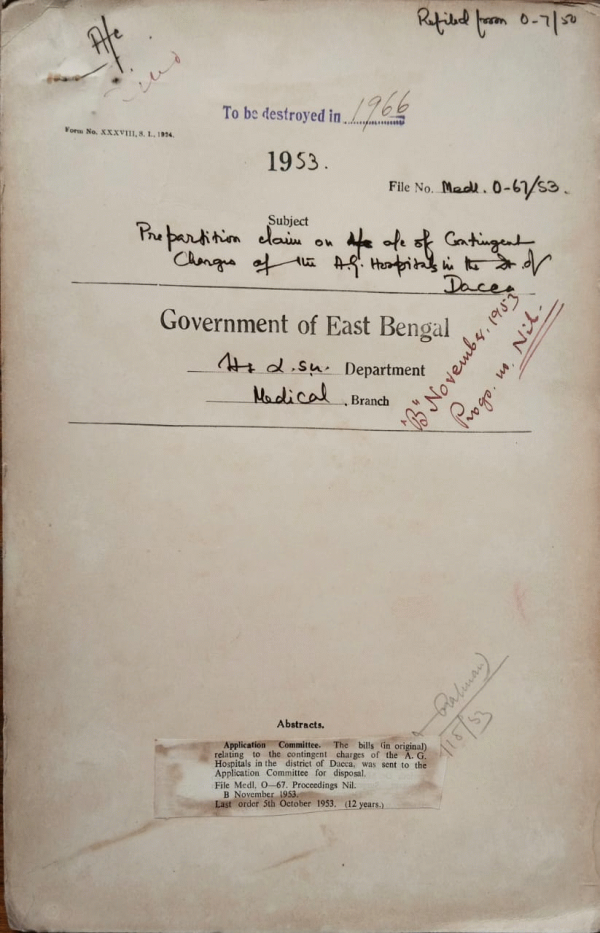 Refiled from O-7/50
A/c
To be destroyed in 1966
Form No. XXXVIII, S. I., 1924.
1953.
File No. Medl. O-67/53.
Subject
Prepartition claim on a/c of Contingent
Charges of the A.G. Hospitals in the Dt. of
Dacca
Government of East Bengal
Department
Medical Branch
"B" November, 1953
Progs. n. Nil.
Rahman
53
Abstracts.
Application Committee. The bills (in original)
relating to the contingent charges of the A. G.
Hospitals in the district of Dacca, was sent to the
Application Committee for disposal.
File Medl, O—67. Proceedings Nil.
B November 1953.
Last order 5th October 1953. (12 years.)